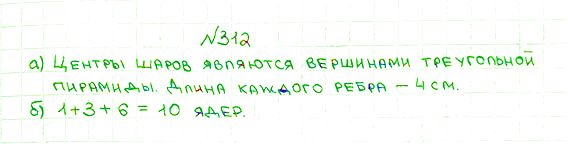 №312
а) Центры шаров являются вершинами треугольной
пирамиды. Длина каждого ребра – 4 см.
б) 1+3+6 = 10 ядер.